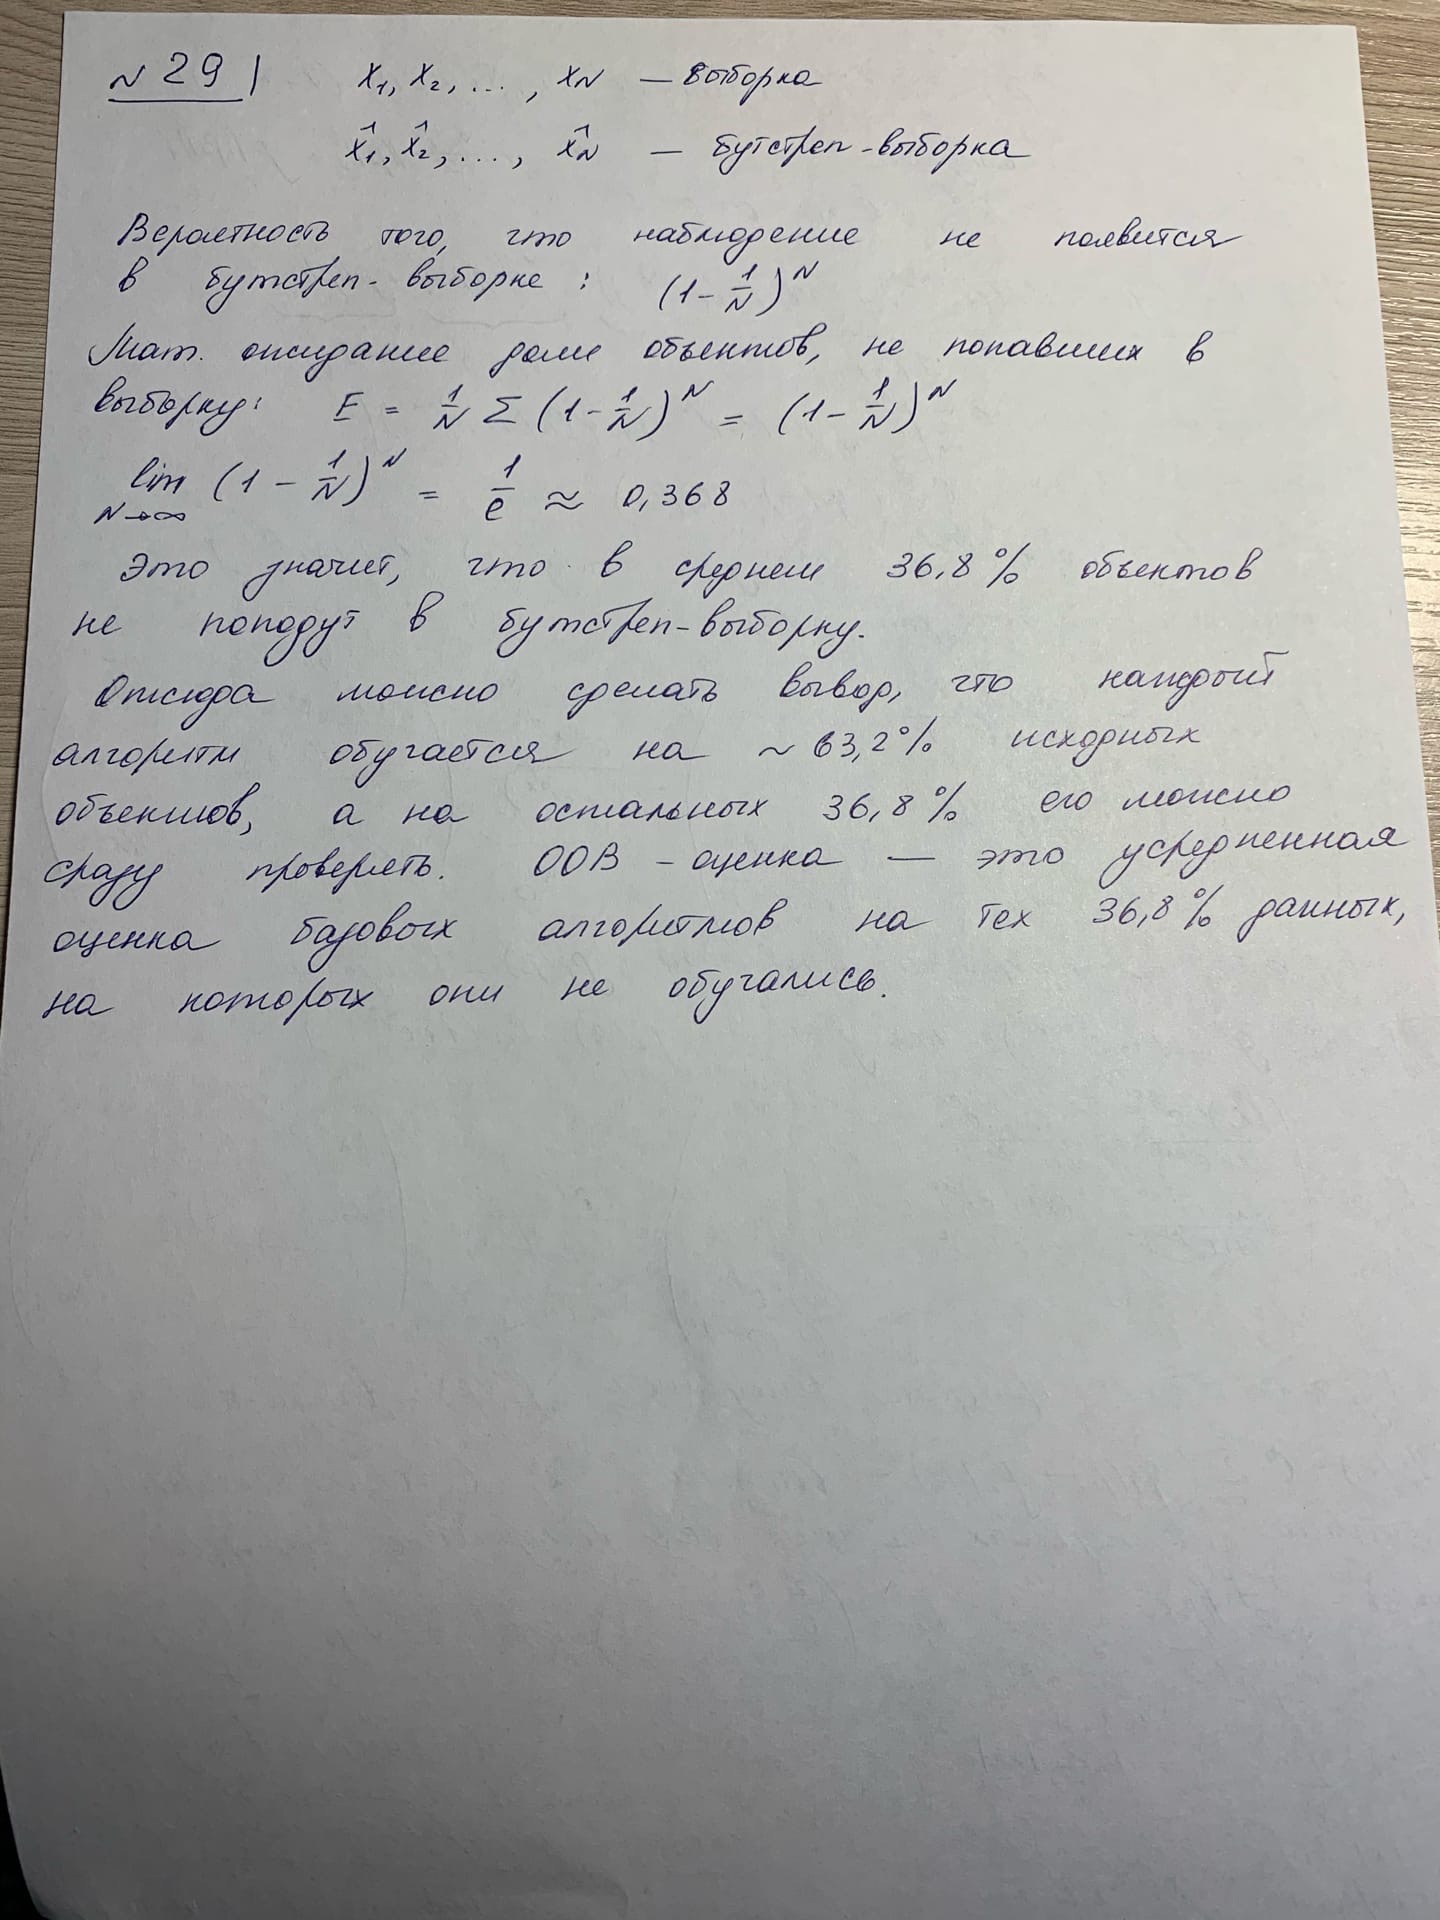 № 29 |
x₁, x₂, ..., x_N — выборка
x̂₁, x̂₂, ..., x̂_N — бутстреп-выборка
Вероятность того, что наблюдение не появится
в бутстреп-выборке: (1 - 1/N)^N
Мат. ожидание доли объектов, не попавших в
выборку: E = 1/N Σ (1 - 1/N)^N = (1 - 1/N)^N
lim N→∞ (1 - 1/N)^N = 1/e ≈ 0,368
Это значит, что в среднем 36,8% объектов
не попадут в бутстреп-выборку.
Отсюда можно сделать вывод, что каждый
алгоритм обучается на ~ 63,2% исходных
объектов, а на остальных 36,8% его можно
сразу проверять. OOB - оценка — это усредненная
оценка базовых алгоритмов на тех 36,8% данных,
на которых они не обучались.